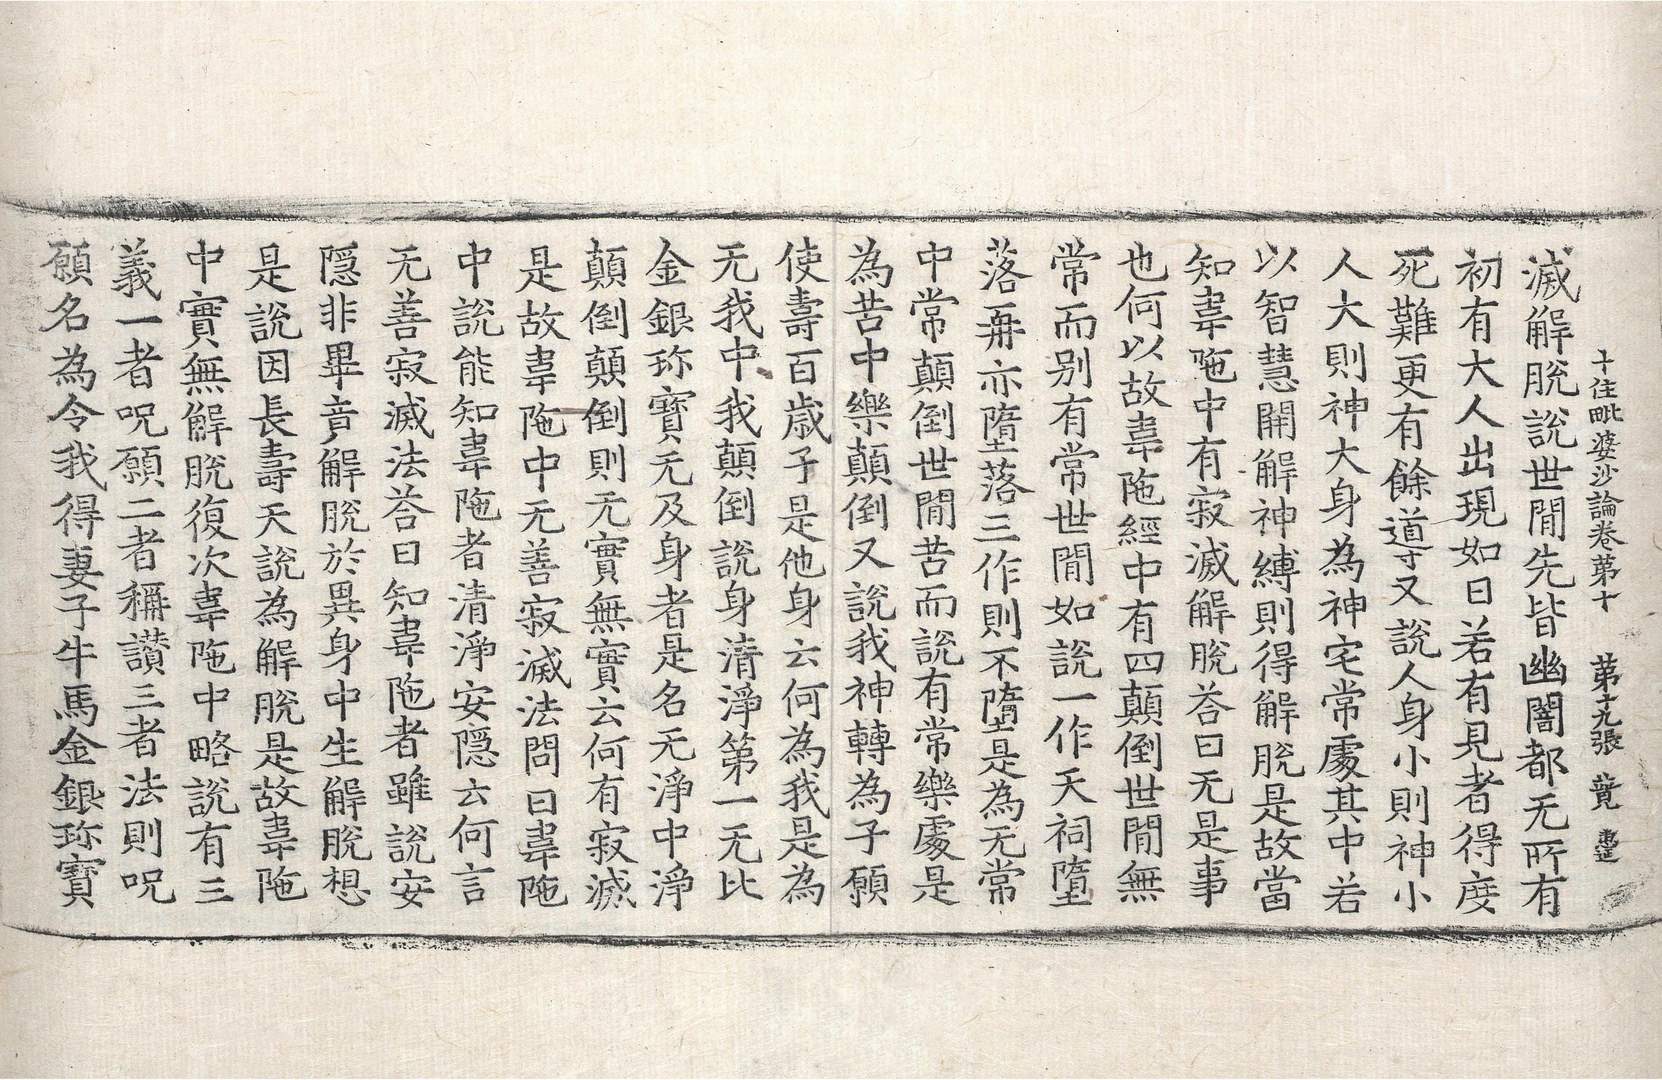 十住毗婆沙論卷第十　第十九張
滅解脫說世間先皆幽闇都无所有
初有大人出現如日若有見者得度
死難更有餘導又說人身小則神小
人大則神大身為神宅常處其中若
以智慧開解神縛則得解脫是故當
知韋陁中有寂滅解脫荅曰无是事
也何以故韋陁經中有四顛倒世間無
常而别有常世間如說一作天祠墮
落再亦墮落三作則不墮是為无常
中常顛倒世間苦而說有常樂處是
為苦中樂顛倒又說我神轉為子願
使壽百歲子是他身云何為我是為
无我中我顛倒說身清淨第一无比
金銀珎寶无及身者是名无淨中淨
顛倒顛倒則无實無實云何有寂滅
是故韋陁中无善寂滅法問曰韋陁
中說能知韋陁者清淨安隱云何言
无善寂滅法荅曰知韋陁者雖說安
隱非畢竟解脫於異身中生解脫想
是說因長壽天說為解脫是故韋陁
中實無解脫復次韋陁中略說有三
義一者呪願二者稱讚三者法則呪
願名為令我得妻子牛馬金銀珎寶